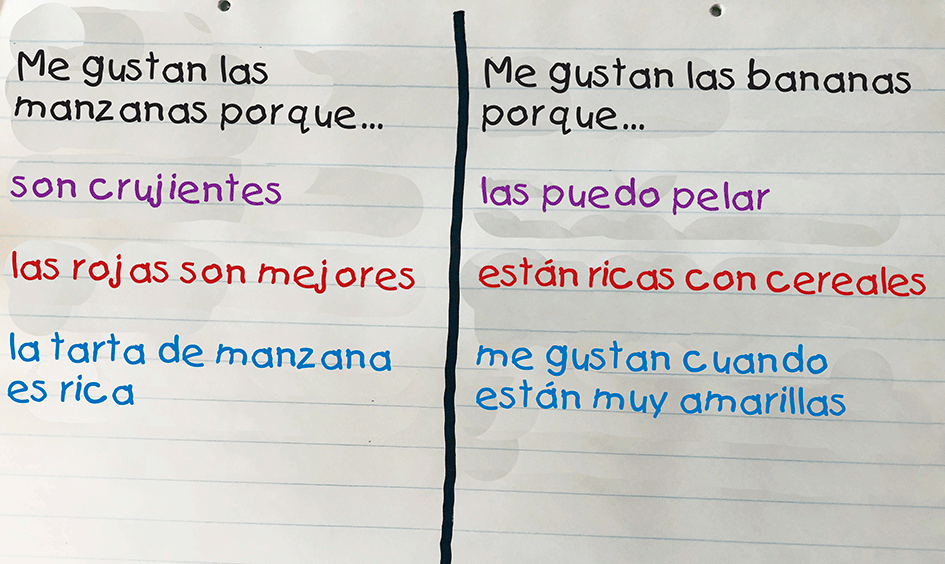 Me gustan las
manzanas porque...
son crujientes
las rojas son mejores
la tarta de manzana
es rica
Me gustan las bananas
porque...
las puedo pelar
están ricas con cereales
me gustan cuando
están muy amarillas